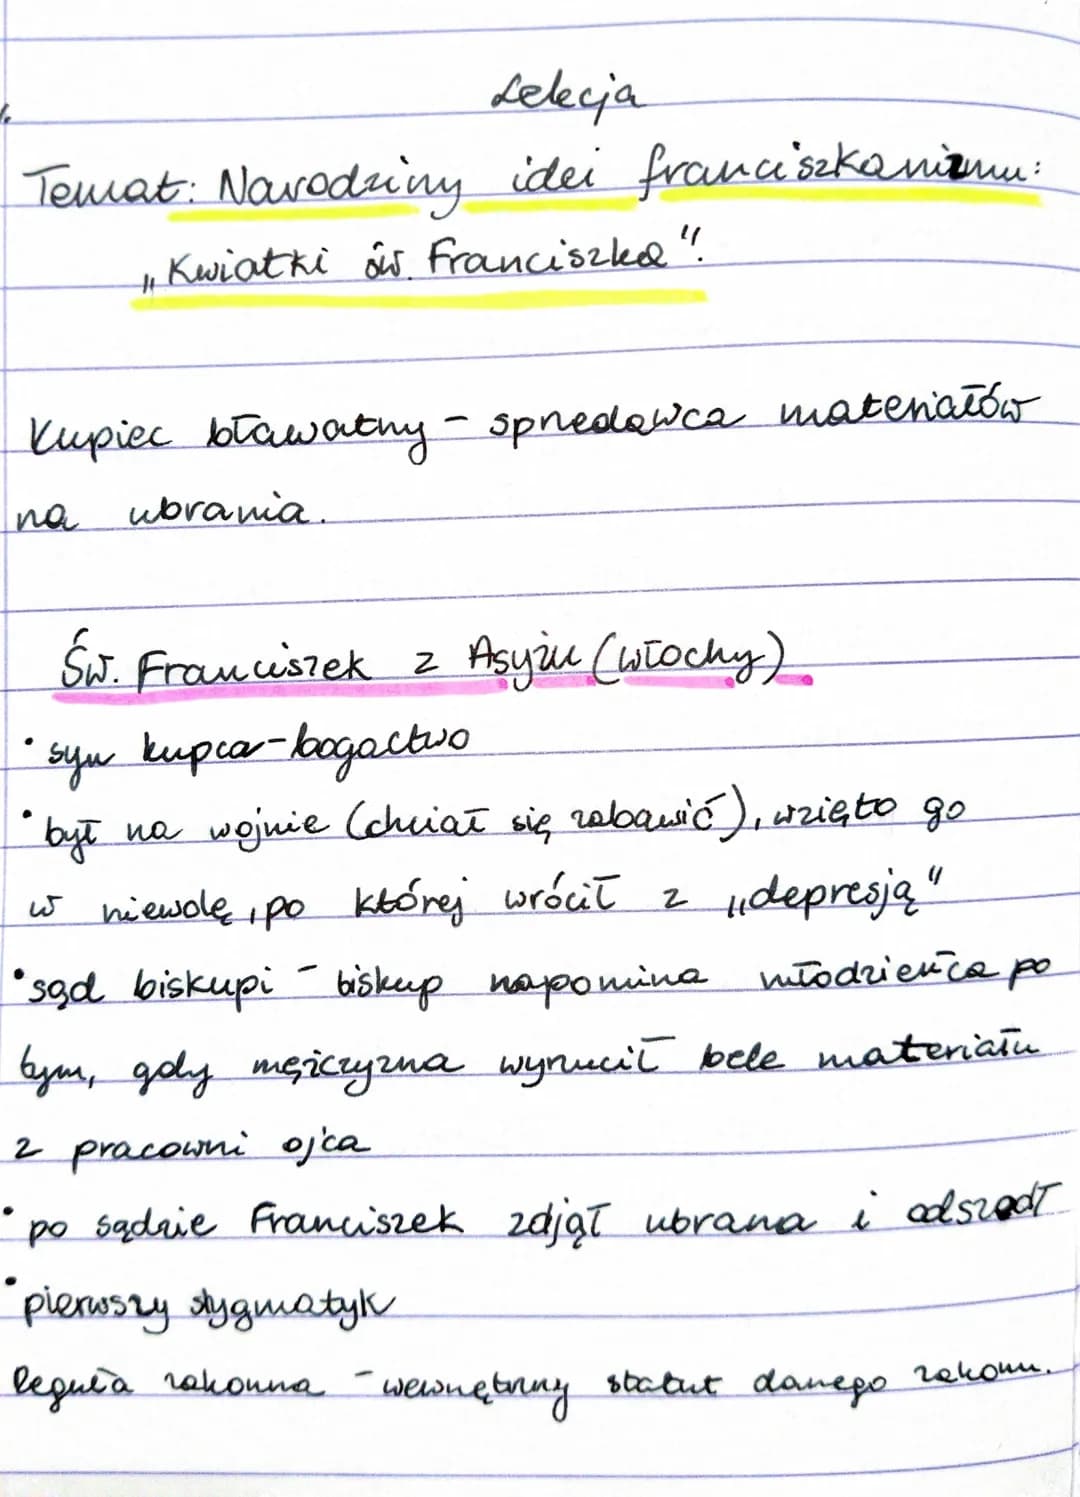 Lekcja
Temat: Narodziny idei franciszkanizmu:
„Kwiatki św. Franciszka".
Kupiec bławatny - sprzedawca materiałów
na ubrania.
Św. Franciszek z Asyżu (włochy)
• syn kupca-bogactwo
• był na wojnie (chciał się zabawić), wzięto go
w niewolę, po której wrócił z „depresją"
• sąd biskupi - biskup napomina młodzieńca po
tym, gdy mężczyzna wyrzucił bele materiału
z pracowni ojca
• po sądzie Franciszek zdjął ubrana i odszedł
• pierwszy stygmatyk
Reguła zakonna - wewnętrzny statut danego zakonu.